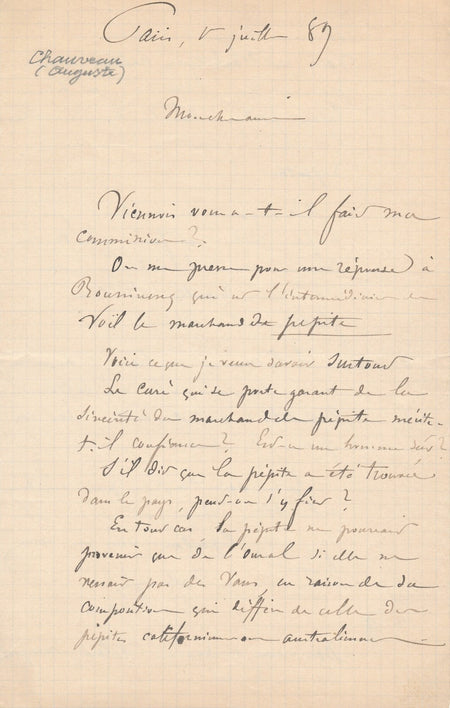 Paris, 1 juillet 89
Chauveau
(Auguste)
Mon cher ami
Viennois vous a-t-il fait ma
commission?
On me presse pour une réponse à
qui est l'intermédiaire de
le marchand de pépite
Voici ce que je veux savoir surtout
Le curé qui se porte garant de la
sincérité du marchand de pépite mérite-
t-il confiance? Est-ce un homme sûr?
S'il dit que la pépite a été trouvée
dans le pays, peut-on s'y fier?
En tout cas, la pépite ne pourrait
provenir que de l'Oural si elle ne
venait pas des Vans en raison de sa
composition qui diffère de celle des
pépites californiennes australiennes